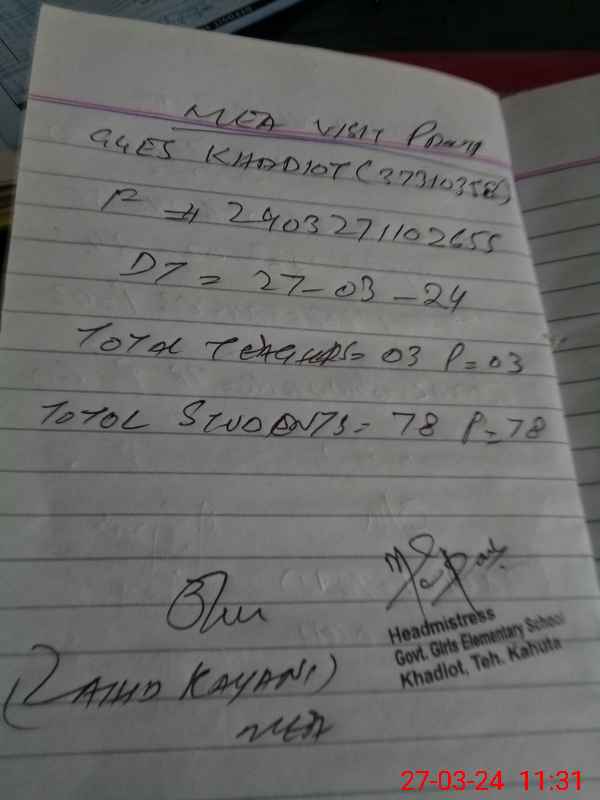 MEA VISIT Proof
GGES KHADIOT (37310358)
F ⇒ 2403271102655
DT = 27-03-24
TOTAL TEACHERS = 03 P = 03
TOTOL STUDENTS = 78 P = 78
Headmistress
Govt. Girls Elementary School
Khadiot, Teh. Kahuta
(ZAIHD KAYANI)
MEA
27-03-24 11:31